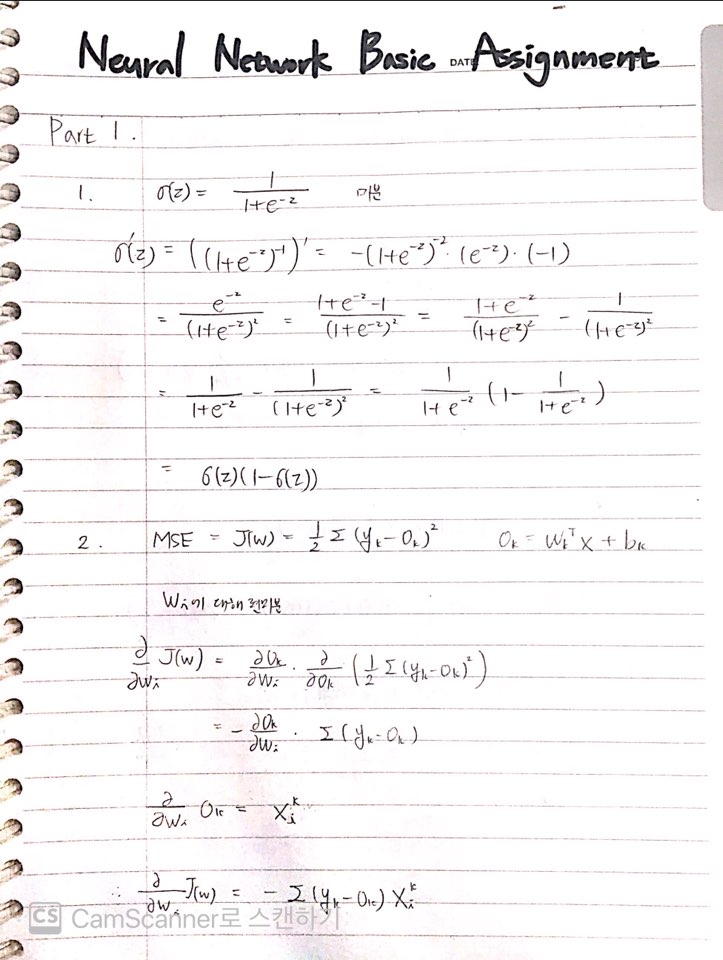 Neural Network Basic Assignment
DATE
Part 1.
1. σ(z) = 1/(1+e⁻ᶻ) 미분
σ'(z) = ((1+e⁻ᶻ)⁻¹)' = -(1+e⁻ᶻ)⁻²·(e⁻ᶻ)·(-1)
= e⁻ᶻ/(1+e⁻ᶻ)² = (1+e⁻ᶻ-1)/(1+e⁻ᶻ)² = (1+e⁻ᶻ)/(1+e⁻ᶻ)² - 1/(1+e⁻ᶻ)²
= 1/(1+e⁻ᶻ) - 1/(1+e⁻ᶻ)² = 1/(1+e⁻ᶻ) (1 - 1/(1+e⁻ᶻ))
= σ(z)(1-σ(z))
2. MSE = J(w) = ½ Σ(yₖ-Oₖ)² Oₖ = wₖᵀx + bₖ
Wᵢ에 대해 편미분
∂/∂wᵢ J(w) = ∂Oₖ/∂wᵢ · ∂/∂Oₖ (½ Σ(yₖ-Oₖ)²)
= - ∂Oₖ/∂wᵢ · Σ(yₖ-Oₖ)
∂/∂wᵢ Oₖ = xᵢᵏ
∴ ∂/∂wᵢ J(w) = - Σ(yₖ-Oₖ) xᵢᵏ
CS CamScanner로 스캔하기